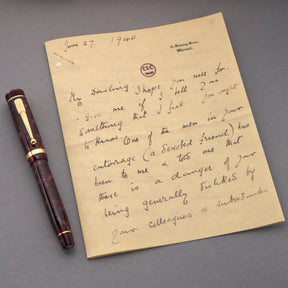 June 27. 1940
10, Downing Street,
Whitehall.
CSC
My Darling, I hope you will for-
give me if I tell you
something that I feel you ought
to know. One of the men in your
entourage (a devoted friend) has
been to me & told me that
there is a danger of your
being generally disliked by
your colleagues &